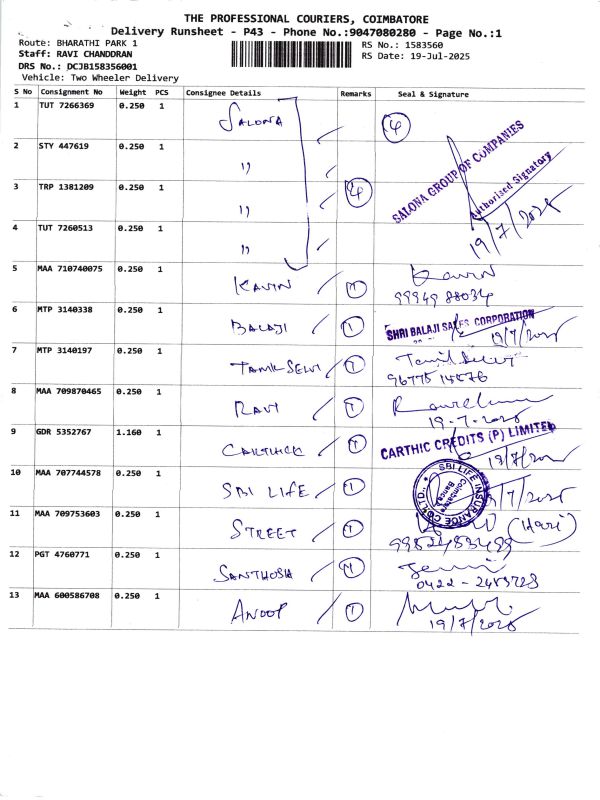 THE PROFESSIONAL COURIERS, COIMBATORE
Delivery Runsheet - P43 - Phone No.:9047080280 - Page No.:1
Route: BHARATHI PARK 1
Staff: RAVI CHANDDRAN
DRS No.: DCJB158356001
Vehicle: Two Wheeler Delivery
RS No.: 1583560
RS Date: 19-Jul-2025
S No Consignment No Weight PCS Consignee Details Remarks Seal & Signature
1 TUT 7266369 0.250 1 SALONA 4
2 STY 447619 0.250 1 "
3 TRP 1381209 0.250 1 " 4
4 TUT 7260513 0.250 1 "
SALONA GROUP OF COMPANIES
Authorised Signatory
19/7/2025
5 MAA 710740075 0.250 1 KAVIN 1 Kavin
99949 88034
6 MTP 3140338 0.250 1 BALAJI 1 SHRI BALAJI SALES CORPORATION
19/7/2025
7 MTP 3140197 0.250 1 TAMILSELVI 1
8 MAA 709870465 0.250 1 RAVI 1
19-7-2025
9 GDR 5352767 1.160 1 CARTHICK 1 CARTHIC CREDITS (P) LIMITED
19/7/2025
10 MAA 707744578 0.250 1 SBI LIFE 1 SBI LIFE INSURANCE CO. LTD.
Coimbatore
/7/2025
11 MAA 709753603 0.250 1 STREET 1 (Hari)
12 PGT 4760771 0.250 1 SANTHOSH 1
13 MAA 600586708 0.250 1 ANOOP 1
19/7/2025